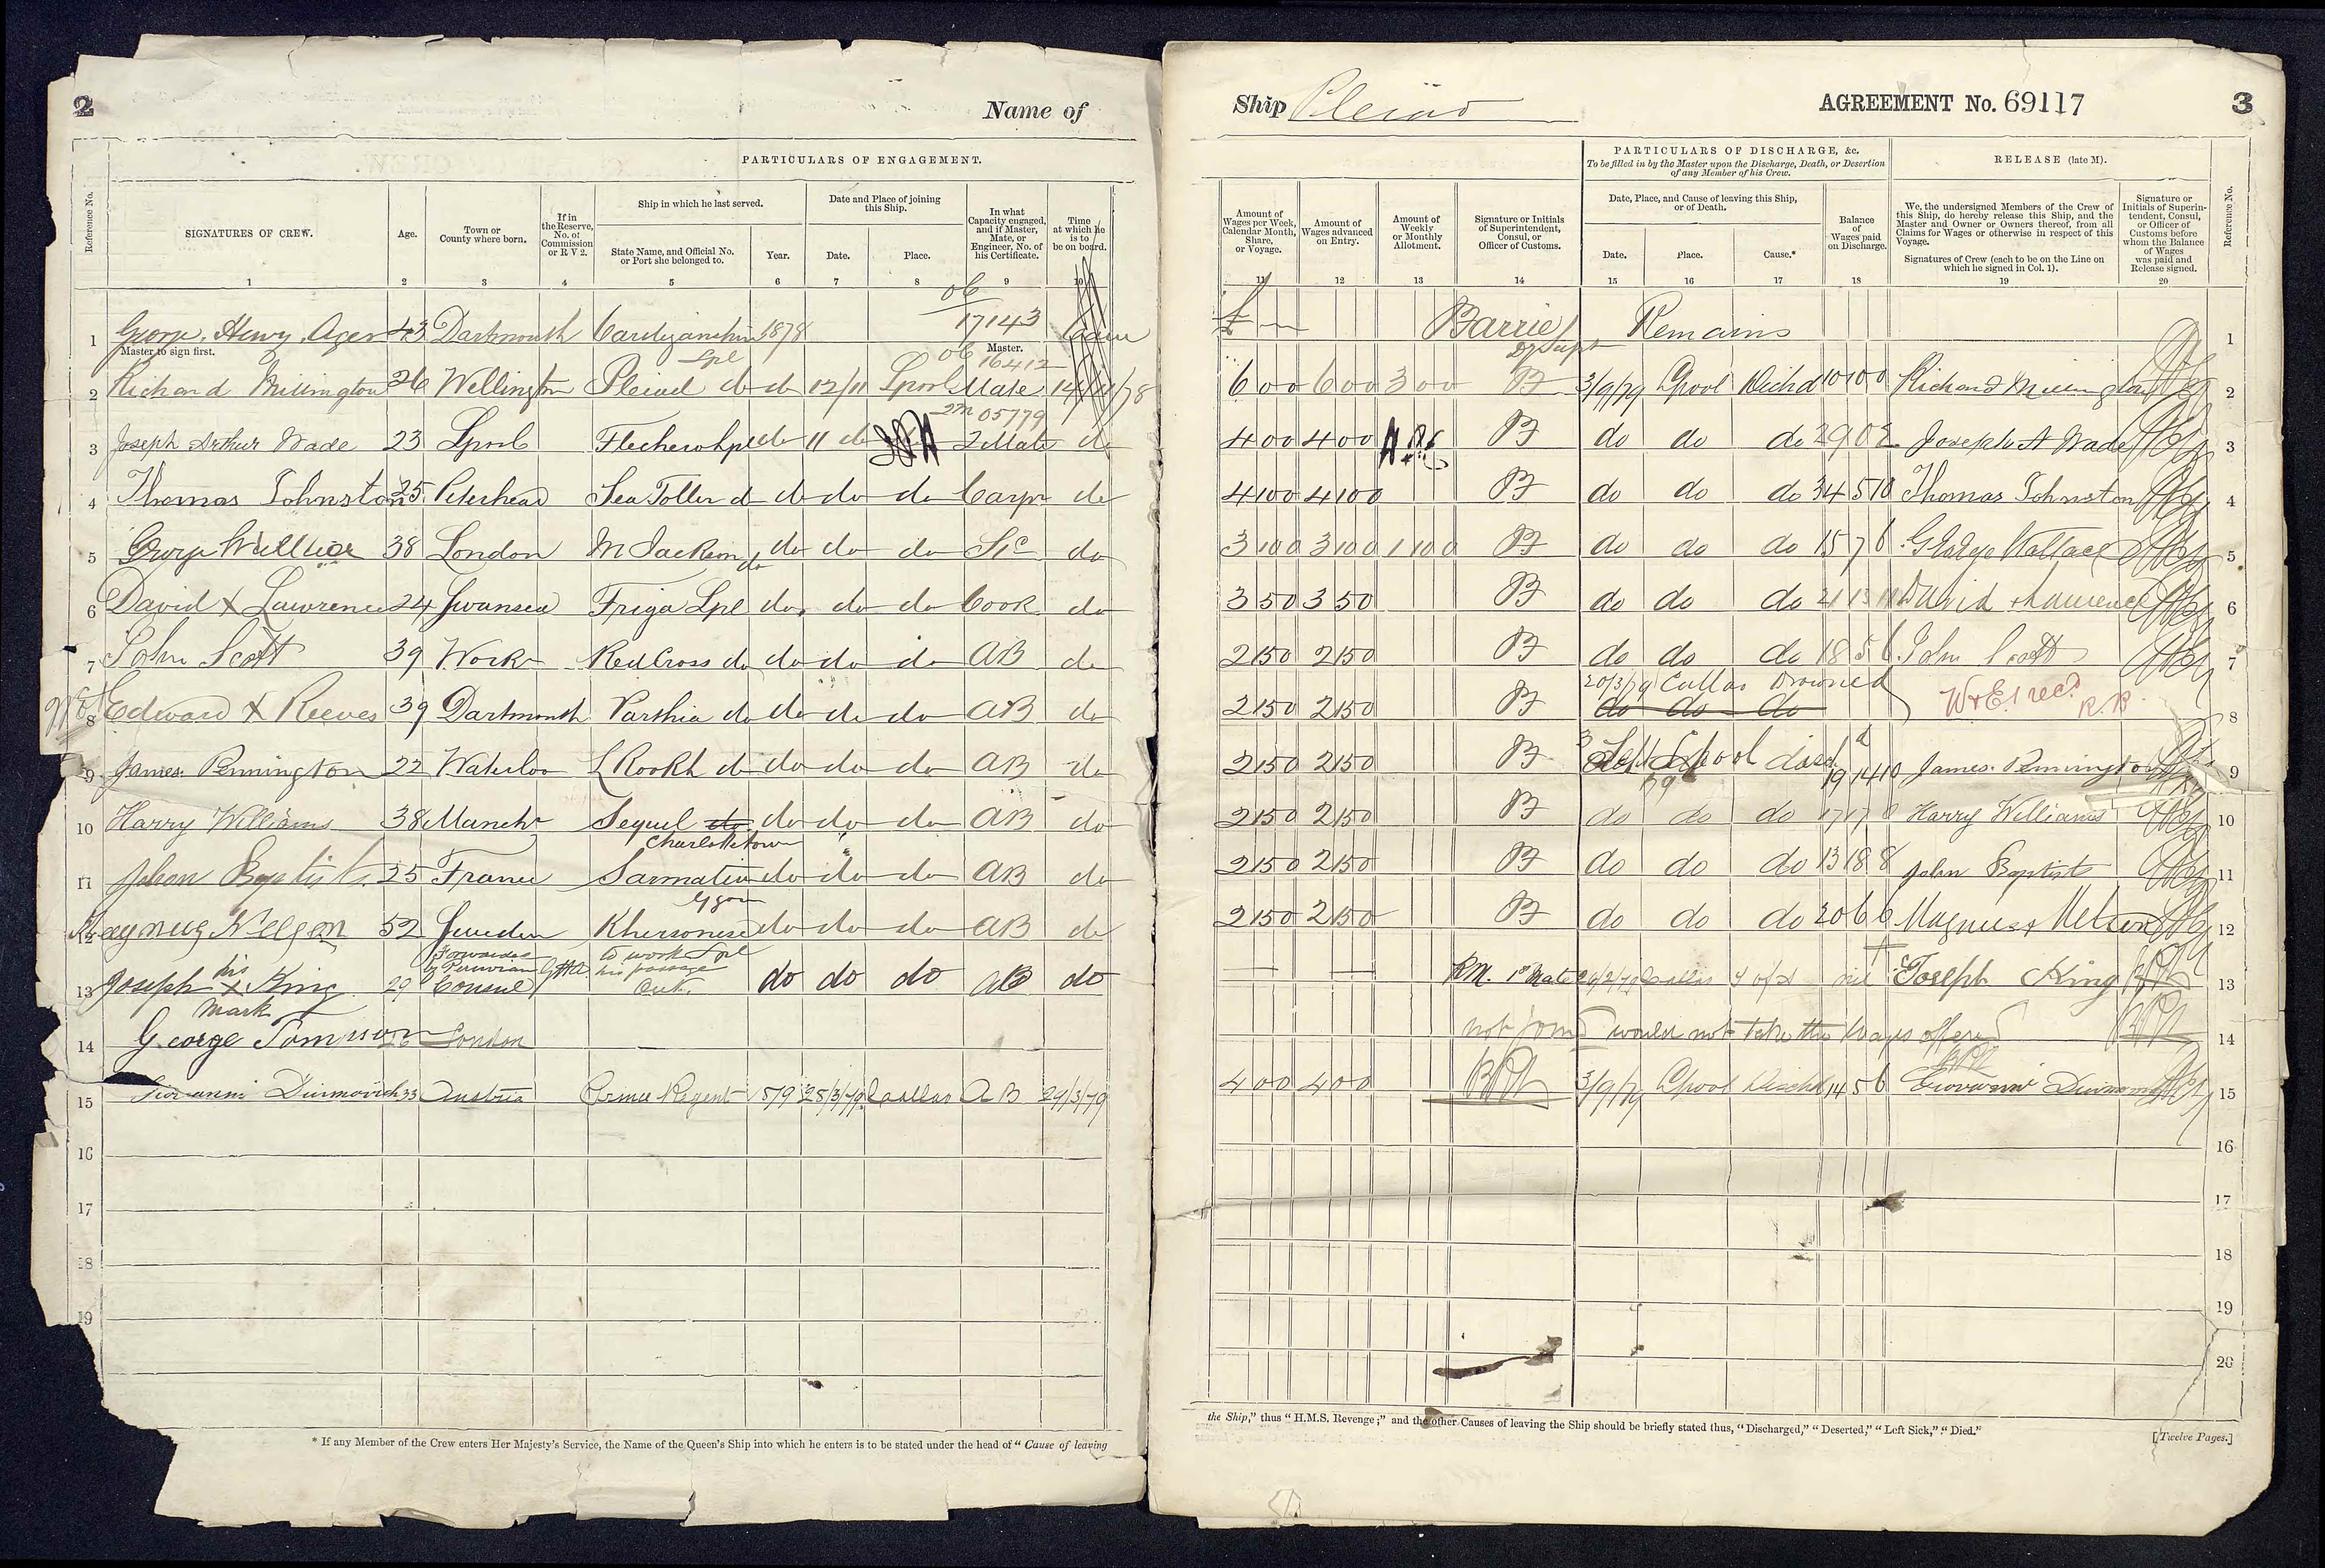 2
Name of
PARTICULARS OF ENGAGEMENT.
Reference No.
SIGNATURES OF CREW.
Age.
Town or County where born.
If in the Reserve, No. of Commission or R V 2.
Ship in which he last served.
State Name, and Official No. or Port she belonged to.
Year.
Date and Place of joining this Ship.
Date.
Place.
In what Capacity engaged, and if Master, Mate, or Engineer, No. of his Certificate.
Time at which he is to be on board.
1 2 3 4 5 6 7 8 9 10
1 George Henry Ager 43 Dartmouth Cardiganshire 1878 17143
Master to sign first. Master.
Lpl 16412
2 Richard Millington 26 Wellington Pleiad do do 12/11 Lpool Mate 14/11/78
2m 05779
3 Joseph Arthur Wade 23 Lpool do 11 do 2 Mate do
4 Thomas Johnston 25 Peterhead do do do Carpr do
5 George Wallace 38 London M Jackson do do do do do
6 David X Lawrence 24 Swansea Friga Lpl do do do Cook do
7 John Scott 39 Red Cross do do do do AB do
8 Edward X Reeves 39 Dartmouth Parthia do do do do AB do
9 James Pennington 22 Waterloo L Rookh do do do do AB do
10 Harry Williams 38 Manchr Sequel do do do do AB do
Charlottetown
11 25 France Sarmatian do do do AB do
12 Magnus Nelson 52 Sweden Khersonese do do do AB do
Forwarded to work
his by Peruvian his passage
13 Joseph X King 29 Consul do do do AB do
mark
14 George London
15 Giovanni 33 Austria Prince Regent 1879 28/3/79 Callao AB 29/3/79
16
17
18
19
* If any Member of the Crew enters Her Majesty's Service, the Name of the Queen's Ship into which he enters is to be stated under the head of "Cause of leaving
Ship Pleiad
AGREEMENT No. 69117
3
PARTICULARS OF DISCHARGE, &c.
To be filled in by the Master upon the Discharge, Death, or Desertion of any Member of his Crew.
RELEASE (late M).
Amount of Wages per Week, Calendar Month, Share, or Voyage.
Amount of Wages advanced on Entry.
Amount of Weekly or Monthly Allotment.
Signature or Initials of Superintendent, Consul, or Officer of Customs.
Date, Place, and Cause of leaving this Ship, or of Death.
Date.
Place.
Cause.*
Balance of Wages paid on Discharge.
We, the undersigned Members of the Crew of this Ship, do hereby release this Ship, and the Master and Owner or Owners thereof, from all Claims for Wages or otherwise in respect of this Voyage.
Signatures of Crew (each to be on the Line on which he signed in Col. 1).
Signature or Initials of Superintendent, Consul, or Officer of Customs before whom the Balance of Wages was paid and Release signed.
Reference No.
11 12 13 14 15 16 17 18 19 20
£ Barrie Remains 1
Dy Supt
6 0 0 6 0 0 3 0 0 B 3/9/79 Lpool Dischd 10 10 0 Richard Millington 2
4 0 0 4 0 0 B do do do 29 0 2 Joseph A Wade 3
4 10 0 4 10 0 B do do do 34 5 10 Thomas Johnston 4
3 10 0 3 10 0 1 10 0 B do do do 15 7 6 George Wallace 5
3 5 0 3 5 0 B do do do 21 13 11 David X Lawrence 6
2 15 0 2 15 0 B do do do 18 5 6 John Scott 7
20/3/79 Callao Drowned
2 15 0 2 15 0 B do do do W & E1 recd R.B. 8
2 15 0 2 15 0 B 3 Sept Lpool disd 19 14 10 James Pennington 9
79
2 15 0 2 15 0 B do do do Harry Williams 10
2 15 0 2 15 0 B do do do 13 18 8 John Baptiste 11
2 15 0 2 15 0 B do do do 20 6 6 Magnus X Nelson 12
1st Mate Callao nil Joseph King 13
not joined would not take the wages offered 14
4 0 0 4 0 0 3/9/79 Lpool Dischd 14 5 6 Giovanni 15
16
17
18
19
20
the Ship," thus "H.M.S. Revenge;" and the other Causes of leaving the Ship should be briefly stated thus, "Discharged," "Deserted," "Left Sick," "Died."
[Twelve Pages.]